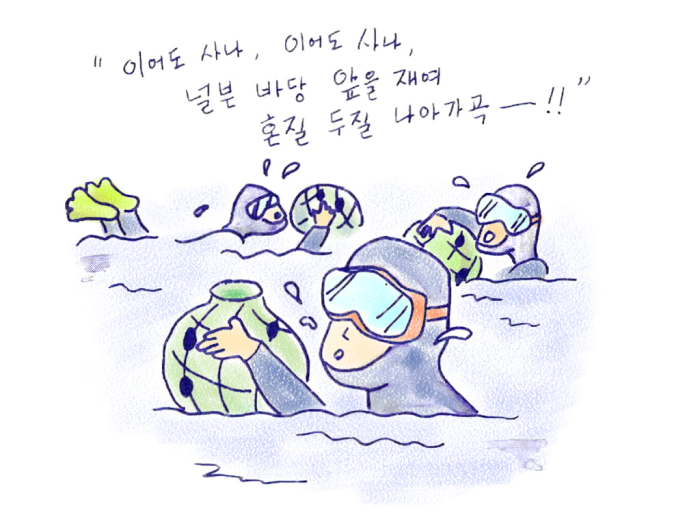 “ 이어도 사나, 이어도 사나,
널분 바당 앞을 재여
혼질 두질 나아가곡 — !! ”